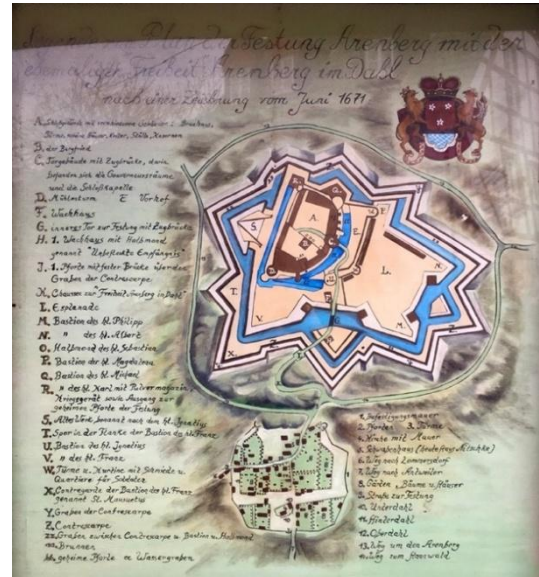 Plan der Festung Arenberg mit der
ehemaligen Freiheit Arenberg im Dahl
nach einer Zeichnung vom Juni 1671
A.
B. der Bergfried
C. Torgebäude mit Zugbrücke, darin
befanden sich die Gouverneursräume
und die Schloßkapelle
D. Mühlenturm E Vorhof
F. Wachhaus
G. inneres Tor zur Festung mit Zugbrücke
H. 1. Wachhaus mit Halbmond
genannt "Unbefleckte Empfängnis"
J. 1. Pforte mit fester Brücke über den
Graben der Contrescarpe
K. Chaussee zur "Freiheit Arenberg im Dahl"
L. Esplanade
M. Bastion des hl. Philipp
N. " des hl. Albert
O. Halbmond des hl. Sebastian
P. Bastion der hl. Magdalena
Q. Bastion des hl. Michael
R. " des hl. Karl mit Pulvermagazin,
Kriegsgerät sowie Ausgang zur
geheimen Pforte der Festung
S. Altes Werk, benannt nach dem hl. Ignatius
T. in der Flanke der Bastion des hl. Franz
U. Bastion des hl. Ignatius
V. " des hl. Franz
W. Türme u. Kurtine mit Schmiede u.
Quartiere für Soldaten
X. Contregarde der Bastion des hl. Franz
genannt St.
Y. Graben der Contrescarpe
Z. Contrescarpe
Graben zwischen Contrescarpe u. Bastion u. Halbmond
Brunnen
geheime Pforte m. Wassergraben
1. Befestigungsmauer
2. Pforten 3. Türme
4. Kirche mit Mauer
5.
6. Weg nach Lommersdorf
7. Weg nach Antweiler
8. Gärten, Bäume u. Häuser
9. Straße zur Festung
10. Unterdahl
11. Hinterdahl
12. Oberdahl
13. Weg um den Arenberg